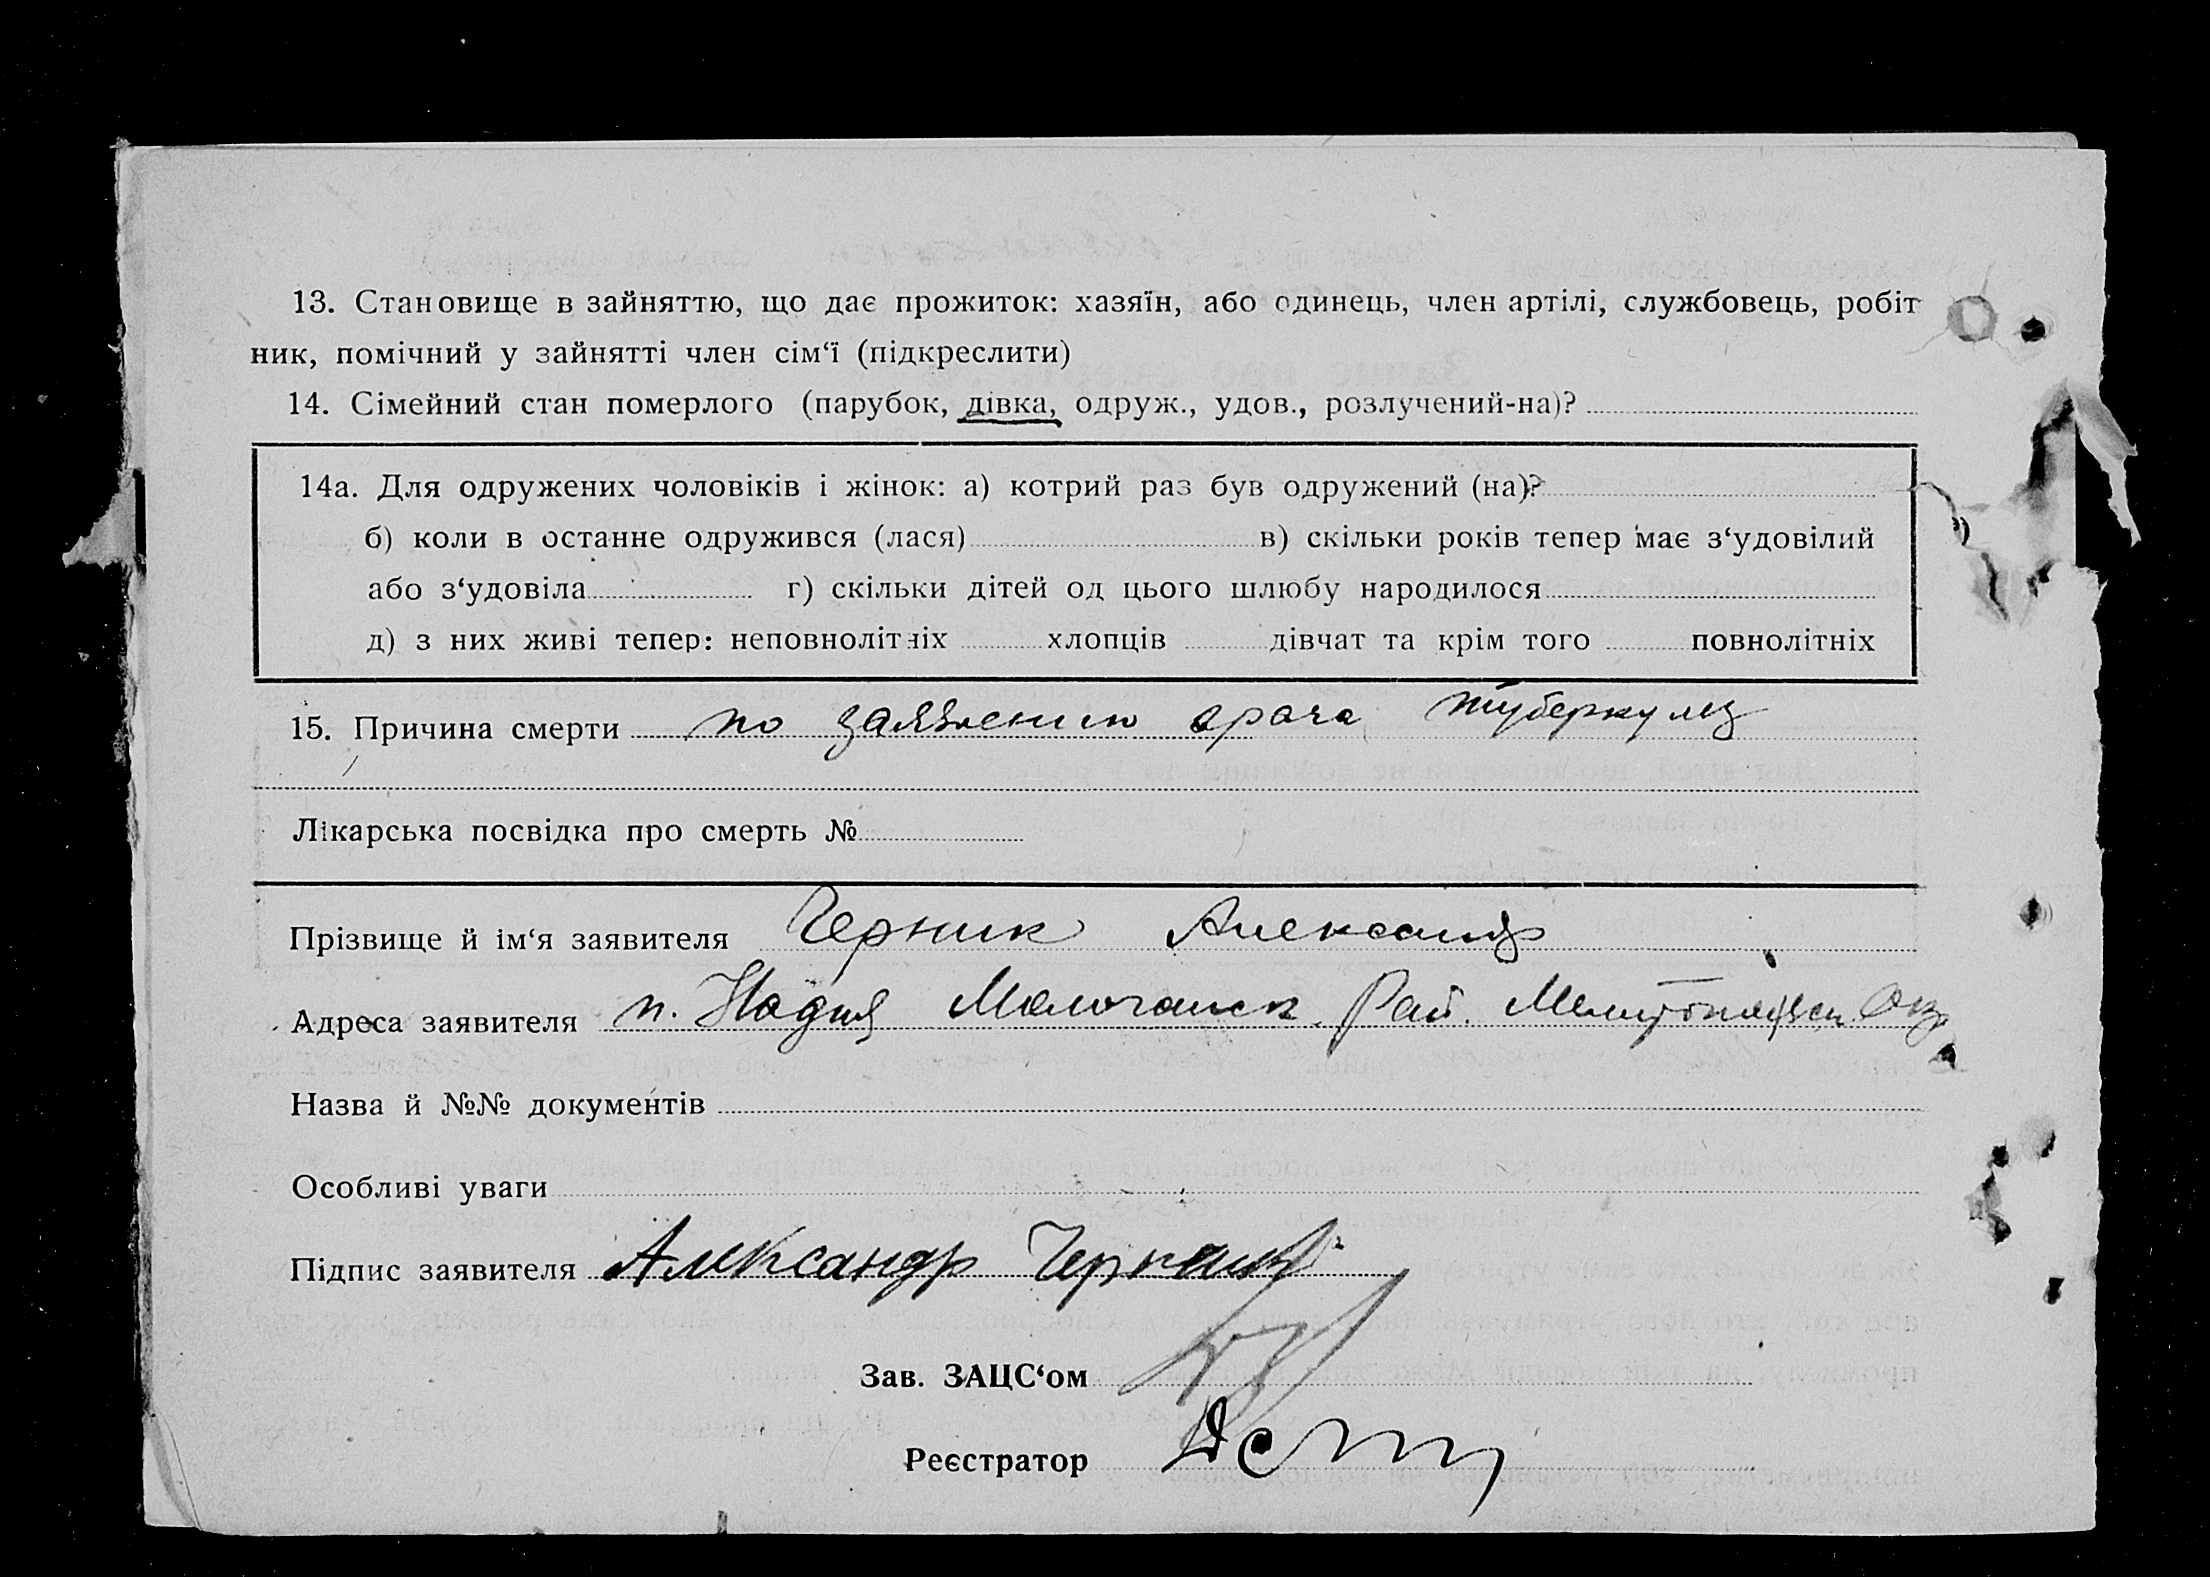 13. Становище в зайняттю, що дає прожиток: хазяїн, або одинець, член артілі, службовець, робіт
ник, помічний у зайнятті член сім‘ї (підкреслити)
14. Сімейний стан померлого (парубок, дівка, одруж., удов., розлучений-на)?
14а. Для одружених чоловіків і жінок: а) котрий раз був одружений (на)?
б) коли в останне одружився (лася) в) скільки років тепер має з‘удовілий
або з‘удовіла г) скільки дітей од цього шлюбу народилося
д) з них живі тепер: неповнолітніх хлопців дівчат та крім того повнолітніх
15. Причина смерти по заявлению врача туберкулез
Лікарська посвідка про смерть №
Прізвище й ім‘я заявителя Черник Александр
Адреса заявителя п. Надия Молочанск. Рай. Мелитопольск Окр.
Назва й №№ документів
Особливі уваги
Підпис заявителя Александр
Зав. ЗАЦС‘ом
Реєстратор